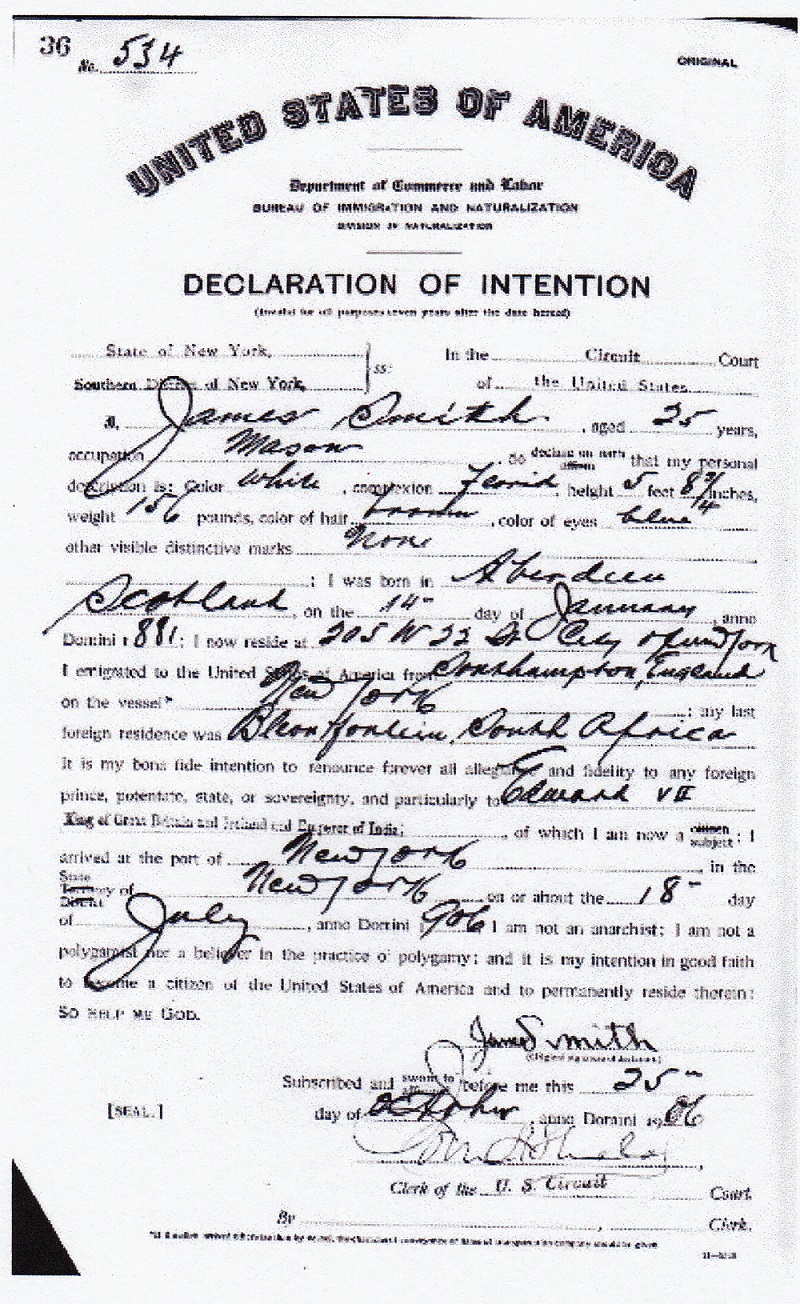 36
No. 534
ORIGINAL
UNITED STATES OF AMERICA
Department of Commerce and Labor
BUREAU OF IMMIGRATION AND NATURALIZATION
DIVISION OF NATURALIZATION
DECLARATION OF INTENTION
(Invalid for all purposes seven years after the date hereof)
State of New York, ss: In the Circuit Court
Southern District of New York, of the United States.
I, James Smith, aged 25 years,
occupation Mason, do declare on oath affirm that my personal
description is: Color White, complexion Florid, height 5 feet 8 3/4 inches,
weight 156 pounds, color of hair brown, color of eyes blue
other visible distinctive marks None
; I was born in Aberdeen
Scotland, on the 14" day of January, anno
Domini 1881; I now reside at 205 W 33 St City of New York
I emigrated to the United States of America from Southampton, England
on the vessel* New York; my last
foreign residence was Bloemfontein, South Africa
It is my bona fide intention to renounce forever all allegiance and fidelity to any foreign
prince, potentate, state, or sovereignty, and particularly to Edward VII
King of Great Britain and Ireland and Emperor of India; , of which I am now a citizen subject; I
arrived at the port of New York, in the
State Territory District of New York on or about the 18" day
of July, anno Domini 1906 I am not an anarchist; I am not a
polygamist nor a believer in the practice of polygamy; and it is my intention in good faith
to become a citizen of the United States of America and to permanently reside therein:
SO HELP ME GOD.
James Smith
(Original signature of declarant)
Subscribed and sworn to before me this 25"
[SEAL.] day of October, anno Domini 1906
Clerk of the U. S. Circuit Court.
By , Clerk.